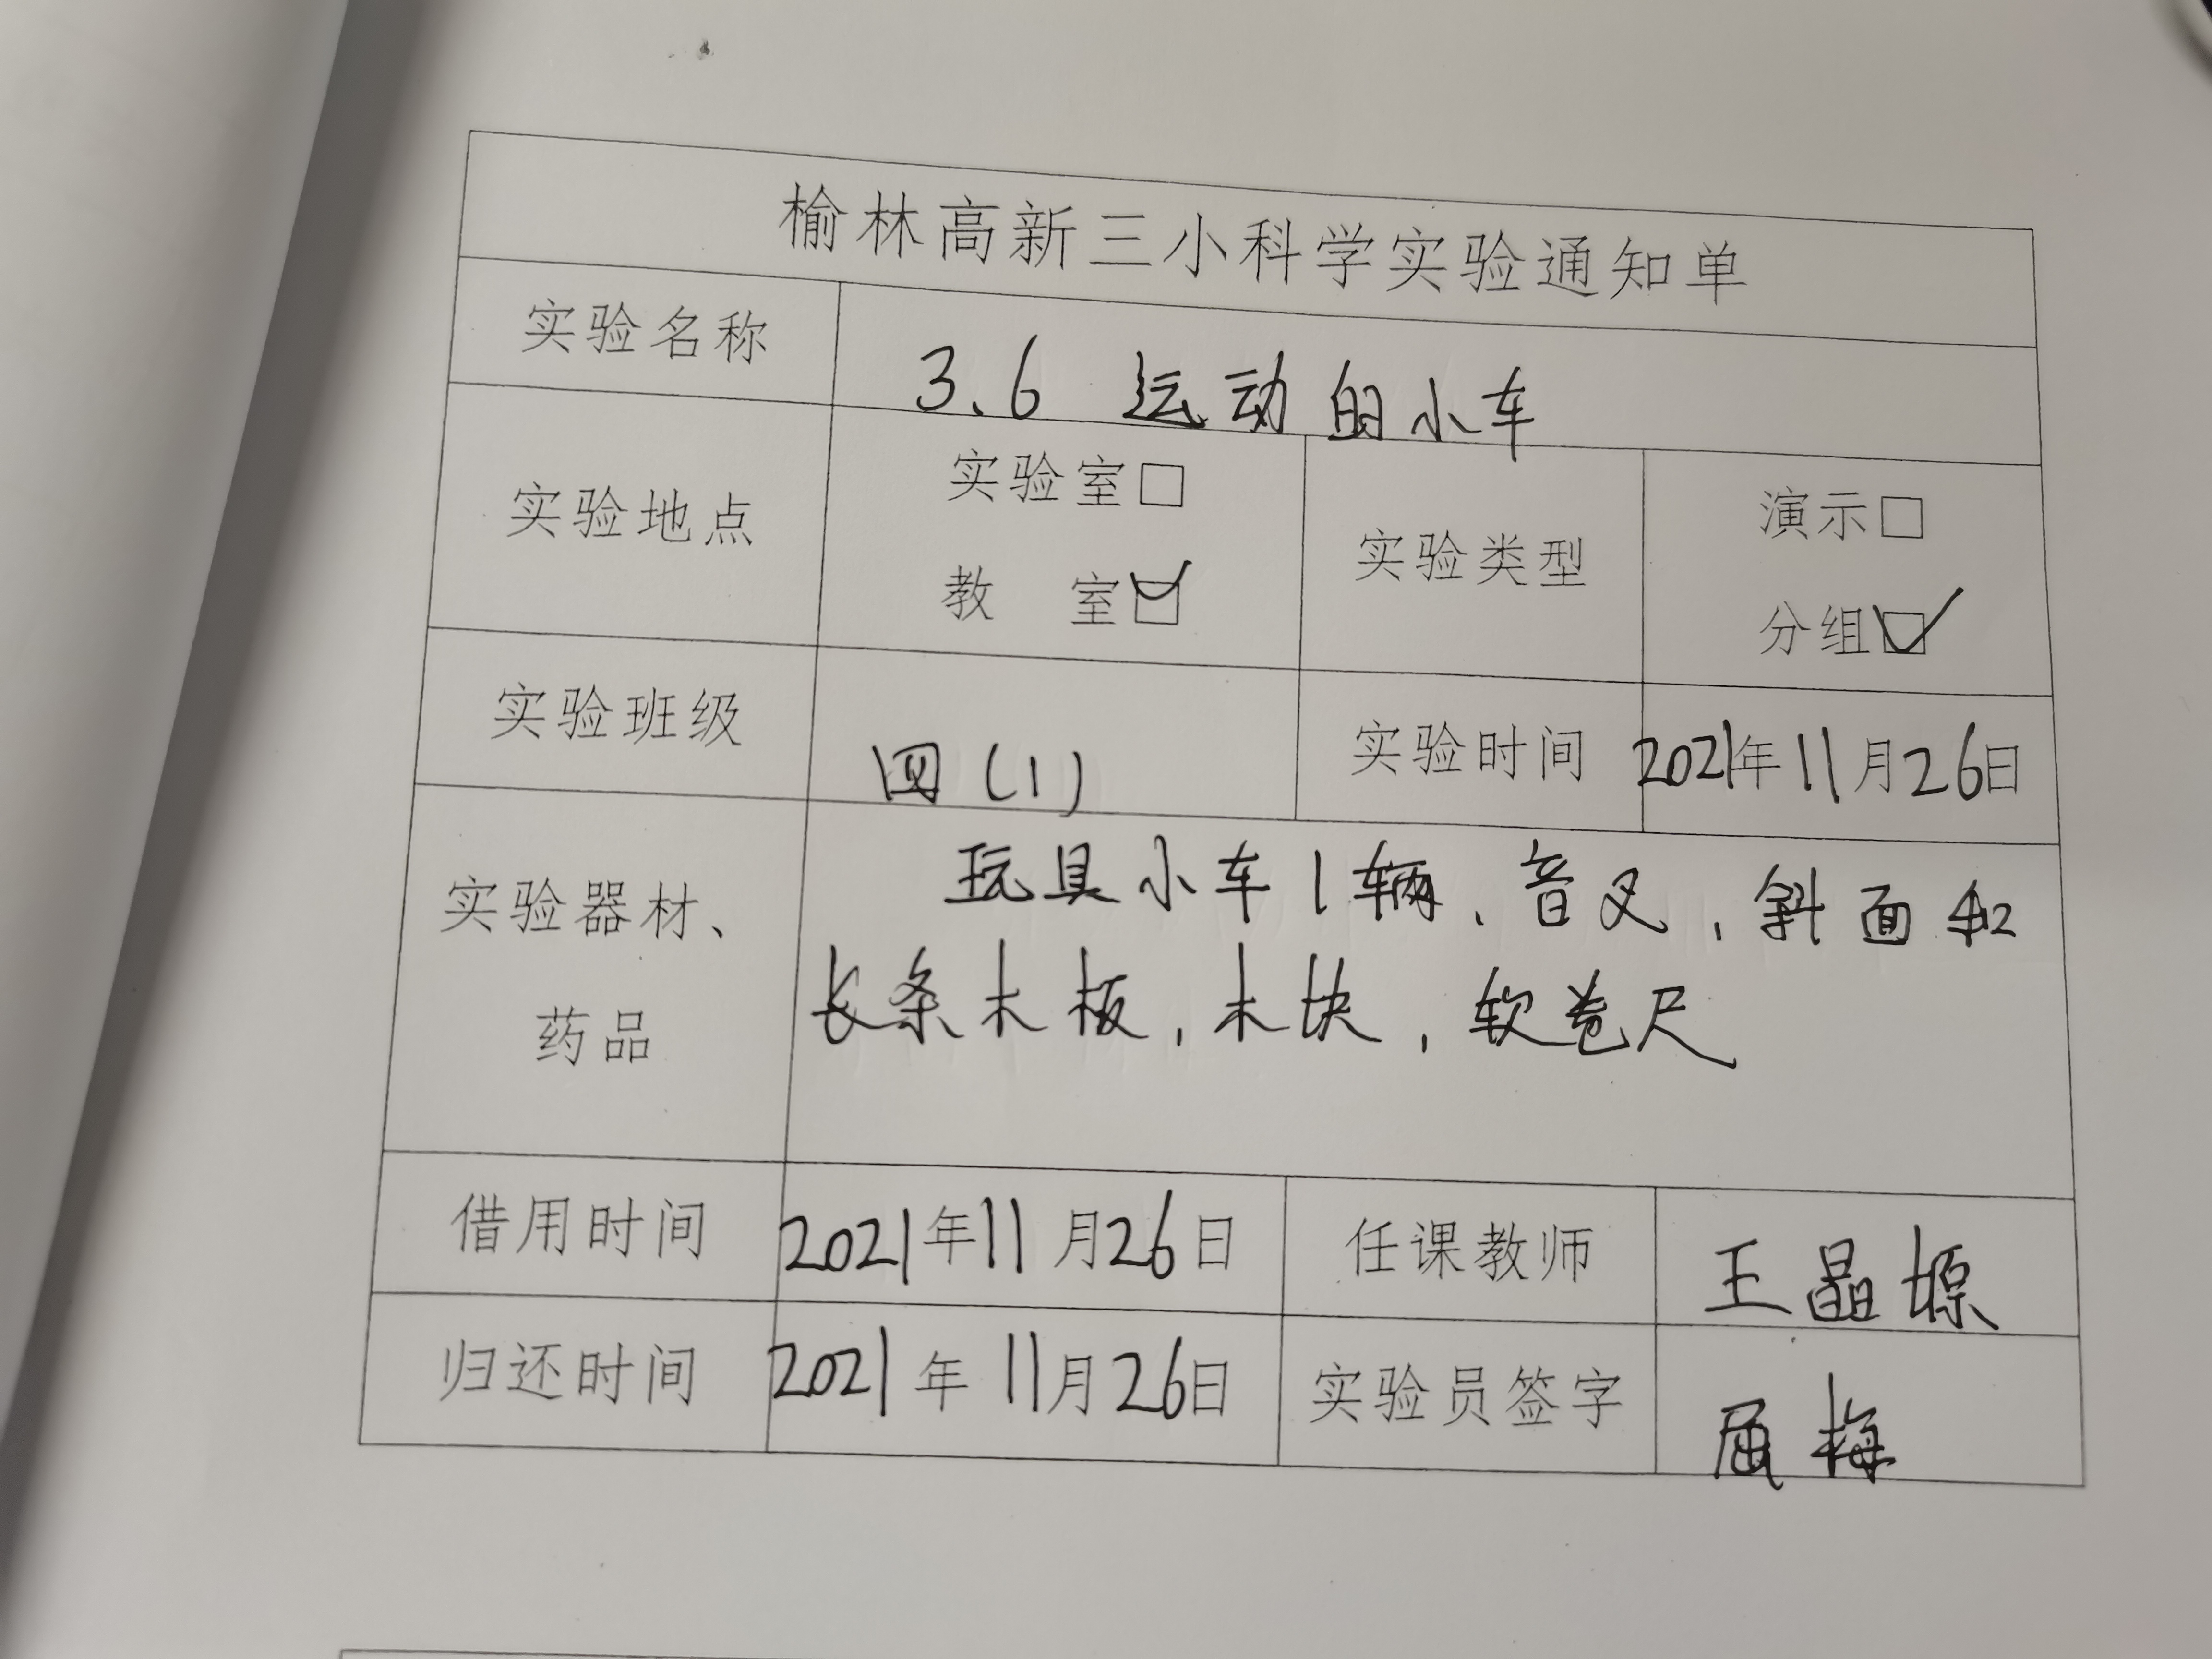 榆林高新三小科学实验通知单
实验名称 3.6 运动的小车
实验地点 实验室□ 教 室☑ 实验类型 演示□ 分组☑
实验班级 四(1) 实验时间 2021年11月26日
实验器材、药品 玩具小车1辆、音叉,斜面和
长条木板,木块,软卷尺
借用时间 2021年11月26日 任课教师 王晶塬
归还时间 2021年11月26日 实验员签字 屈梅